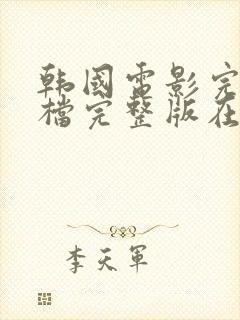 韩國雷影完
檔完整版在
李天軍